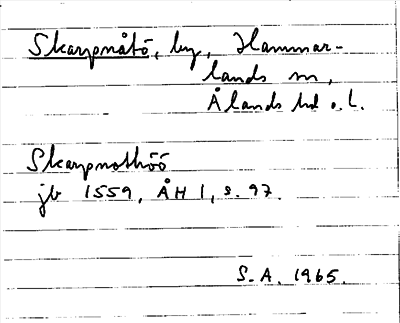 Skarpnåtö, by, Hammar-
lands sn,
Ålands hd o. l.
Skarpnothöö
jb 1559, ÅH 1, s. 97.
S. A. 1965.